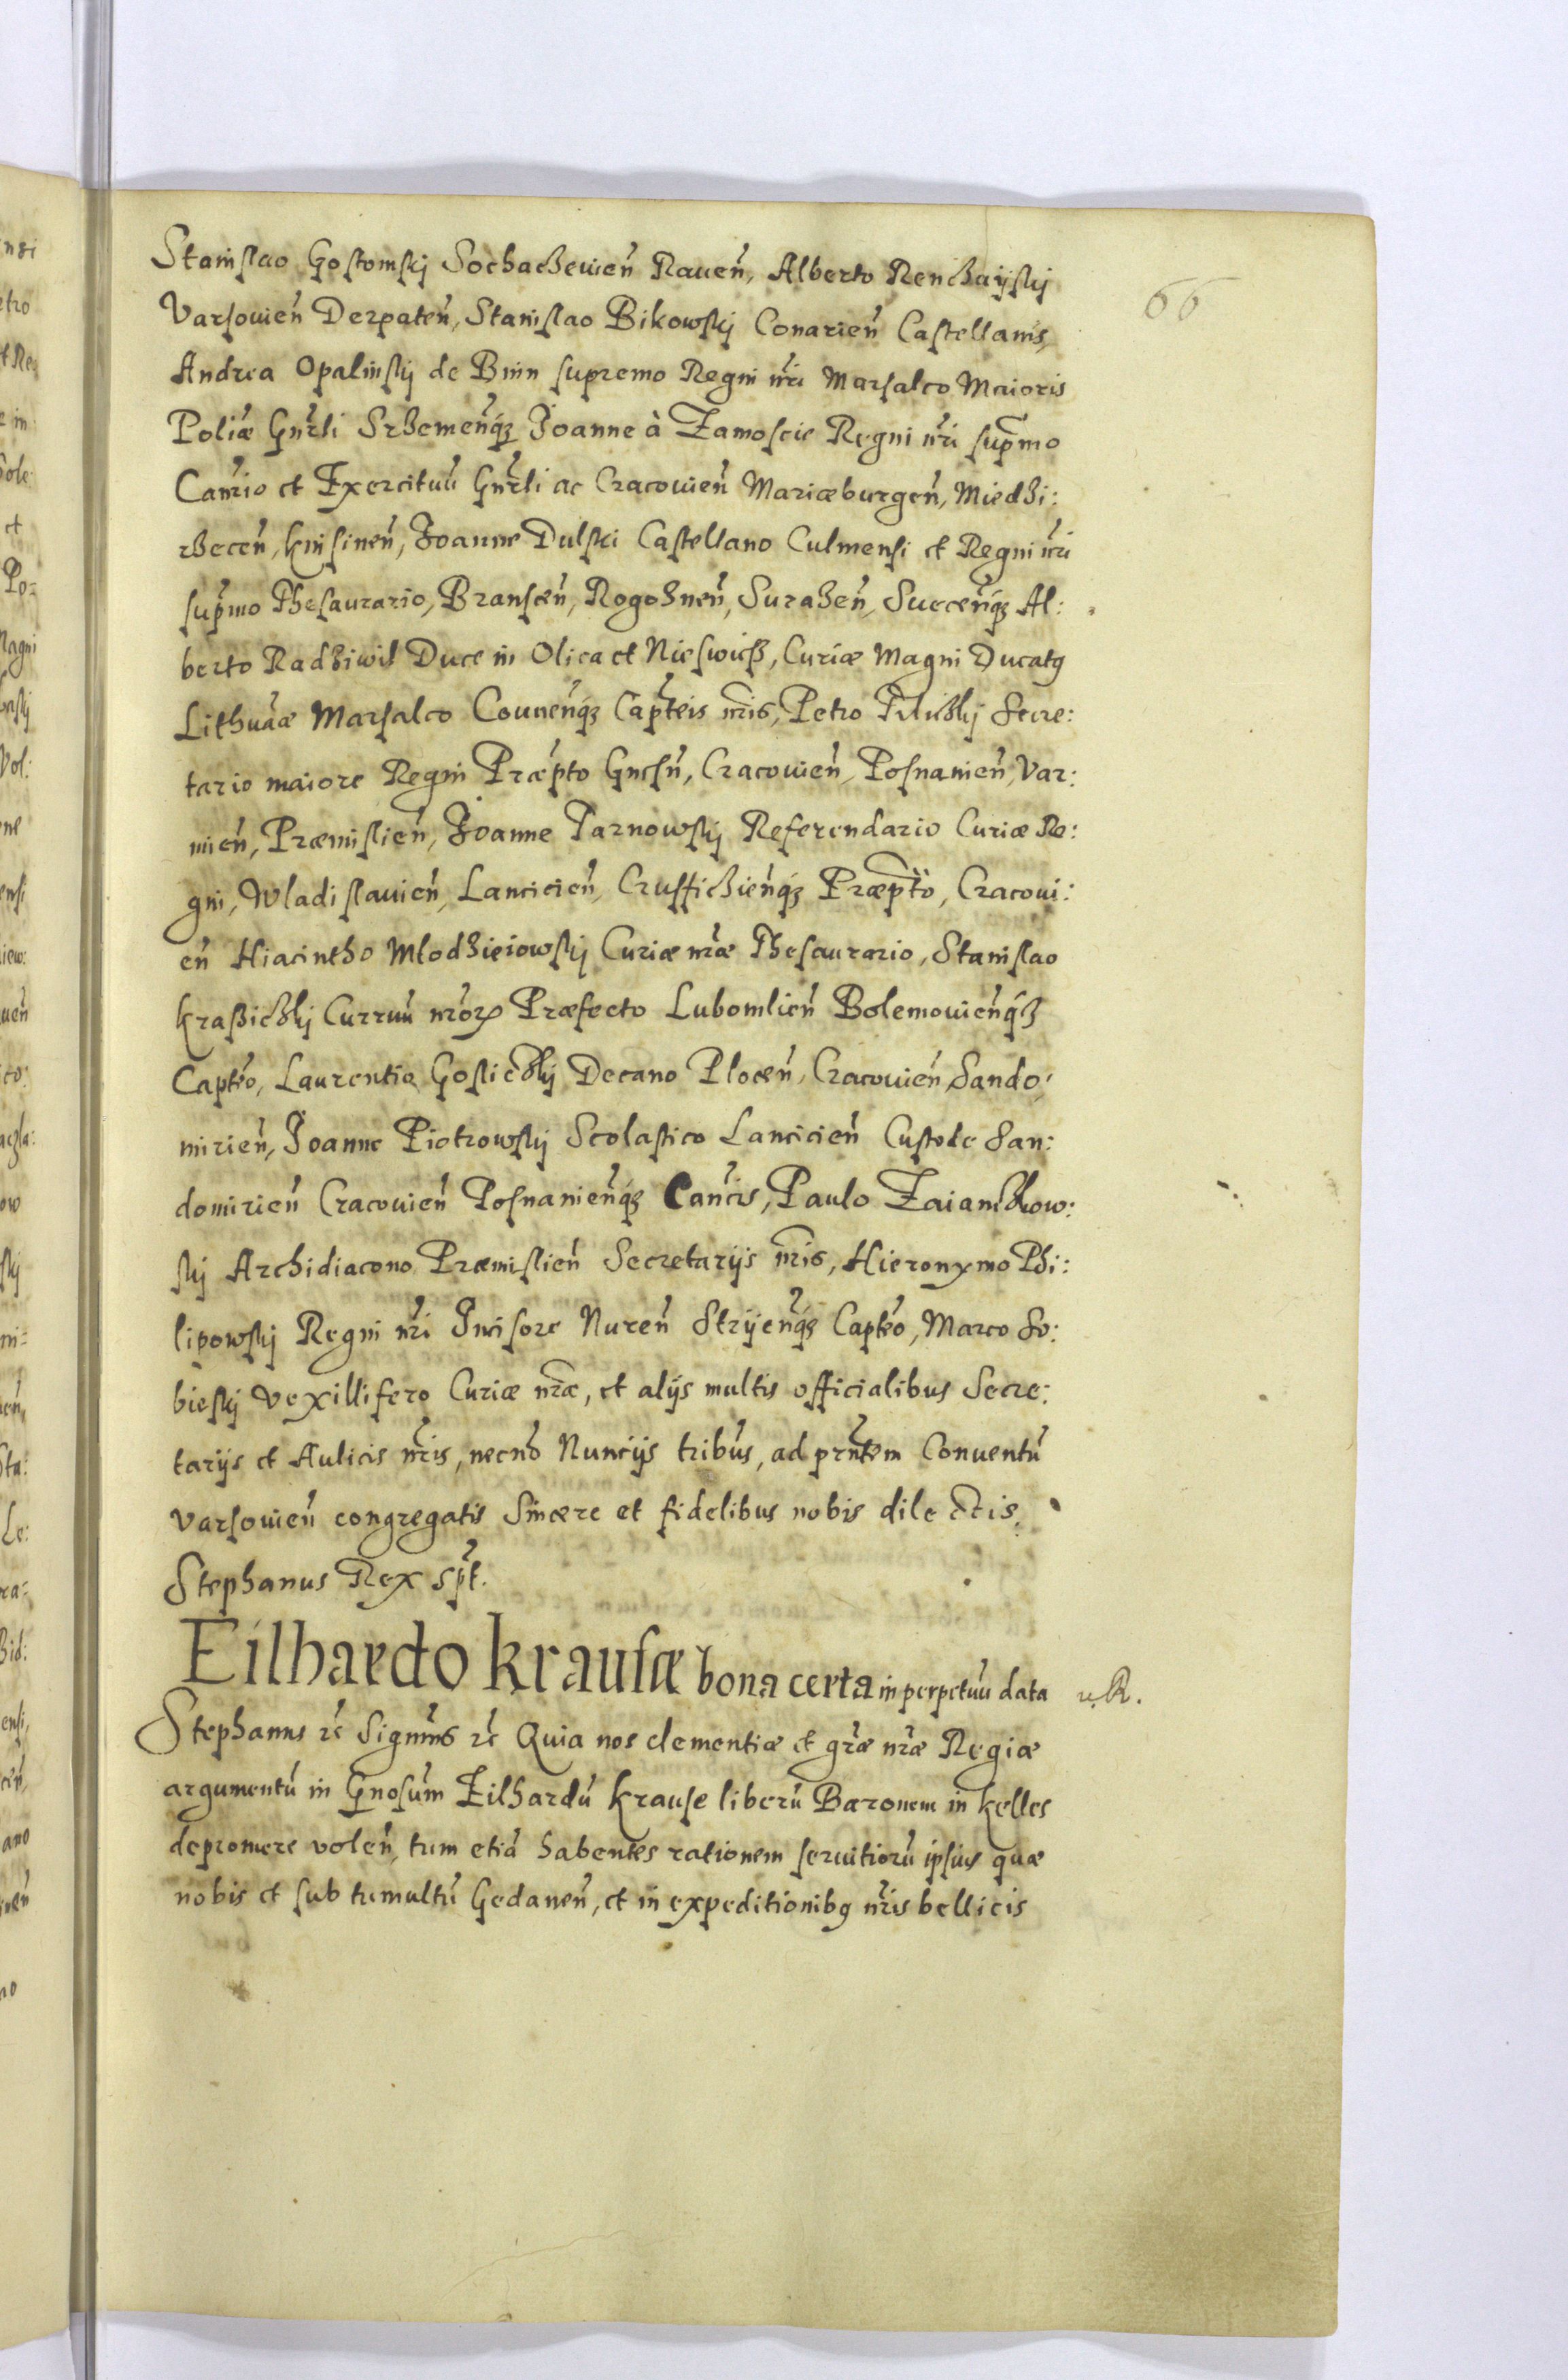 Stanislao Gostomskj Sochaczevien̄ Raven̄, Alberto Renczaijskj
66
Varsovien̄ Derpaten̄, Stanislao Bikowskj Conarien̄ Castellanis,
Andrea Opalinskj de Bnin supremo Regni nr̄i Marsalco Maioris
Poliæ Gnr̄li Srzemenq̄ꝫ Joanne à Zamoscie Regni nr̄i supr̄mo
Can̄rio et Exercituū Gnr̄li ac Cracovien̄ Mariæburgen̄, Miedzi:
rzecen̄, Knisinen̄, Joanne Dulski Castellano Culmensi et Regni nr̄i
supr̄mo Thesaurario, Branscen̄, Rogoznen̄, Surazen̄, Suecenq̄ꝫ Al:
berto Radziwil Duce in Olica et Nieswicß, Curiæ Magni Ducatꝰ
Lithuāæ Marsalco Couuenq̄ꝫ Capt̄eis nr̄is, Petro Tiliczkj Secre:
tario maiore Regni Præp̄to Gnesn̄, Cracovien̄, Posnanien̄, Var:
mien̄, Præmislien̄, Joanne Tarnowskj Referendario Curiæ Re:
gni, Wladislavien̄, Lancicien̄, Crusficzienq̄ꝫ Præpt̄o, Cracovi:
en̄ Hiacintho Mlodzieiowskj Curiæ nr̄æ Thesaurario, Stanislao
Kraßiczkj Curruū nr̄oꝝ Præfecto Lubomlien̄ Bolemovienq̄ꝫ
Capt̄eo, Laurentio Gosliczkj Decano Plocen̄, Cracovien̄ Sando:
mirien̄, Joanne Piotrowskj Scolastico Lancicien̄ Custode San:
domirien̄ Cracovien̄ Posnanienq̄ꝫ Can̄cis, Paulo Zaianczkow:
skj Archidiacono Præmislien̄ Secretarijs nr̄is, Hieronymo Phi:
lipowskj Regni nr̄i Incisore Nuren̄ Strijenq̄ꝫ Capt̄eo, Marco So:
bieskj Vexillifero Curiæ nr̄æ, et alijs multis officialibus Secre:
tarijs et Aulicis nr̄is, necn̄o Nuncijs tribus, ad prn̄tem Conventū
Varsovien̄ congregatis Sincere et fidelibus nobis dilectis.
Stephanus Rex sp̄t.
Eilhardo Krausæ bona certa in perpetuū data
u. R.
Stephanus rc̄ Signm̄us rc̄ Quia nos clementiæ et gr̄æ nr̄æ Regiæ
argumentū in Gn̄osum Eilhardū Krause liberū Baronem in Kelles
depromere volen̄, tum etiā habentes rationem servitiorū ipsius quæ
nobis et sub tumultū Gedanen̄, et in expeditionibꝰ nr̄is bellicis